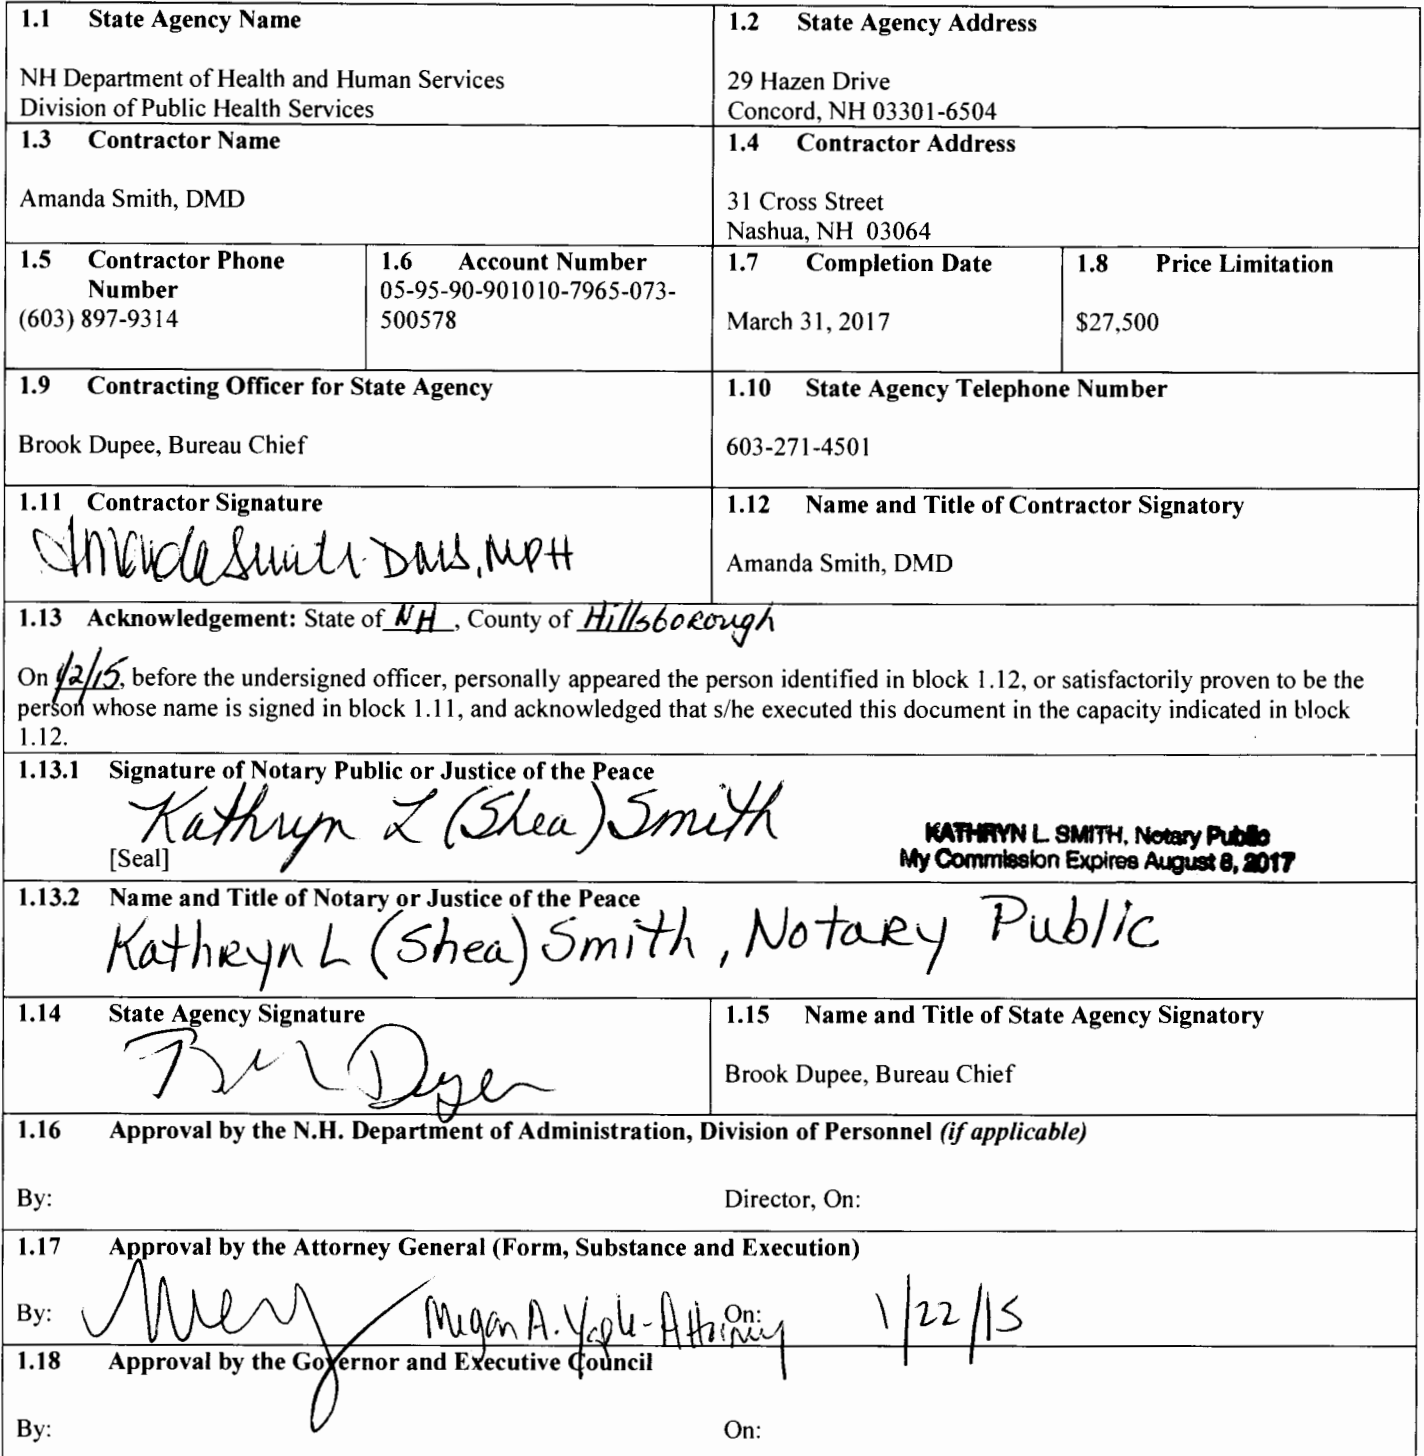 1.1 State Agency Name
NH Department of Health and Human Services
Division of Public Health Services
1.2 State Agency Address
29 Hazen Drive
Concord, NH 03301-6504
1.3 Contractor Name
Amanda Smith, DMD
1.4 Contractor Address
31 Cross Street
Nashua, NH 03064
1.5 Contractor Phone
Number
(603) 897-9314
1.6 Account Number
05-95-90-901010-7965-073-
500578
1.7 Completion Date
March 31, 2017
1.8 Price Limitation
$27,500
1.9 Contracting Officer for State Agency
Brook Dupee, Bureau Chief
1.10 State Agency Telephone Number
603-271-4501
1.11 Contractor Signature
Amanda Smith DMD, MPH
1.12 Name and Title of Contractor Signatory
Amanda Smith, DMD
1.13 Acknowledgement: State of NH, County of Hillsborough
On 1/2/15, before the undersigned officer, personally appeared the person identified in block 1.12, or satisfactorily proven to be the
person whose name is signed in block 1.11, and acknowledged that s/he executed this document in the capacity indicated in block
1.12.
1.13.1 Signature of Notary Public or Justice of the Peace
Kathryn L (Shea) Smith
[Seal]
KATHRYN L. SMITH, Notary Public
My Commission Expires August 8, 2017
1.13.2 Name and Title of Notary or Justice of the Peace
Kathryn L (Shea) Smith, Notary Public
1.14 State Agency Signature
1.15 Name and Title of State Agency Signatory
Brook Dupee, Bureau Chief
1.16 Approval by the N.H. Department of Administration, Division of Personnel (if applicable)
By: Director, On:
1.17 Approval by the Attorney General (Form, Substance and Execution)
By: Megan A. Yaple - Attorney On: 1/22/15
1.18 Approval by the Governor and Executive Council
By: On: